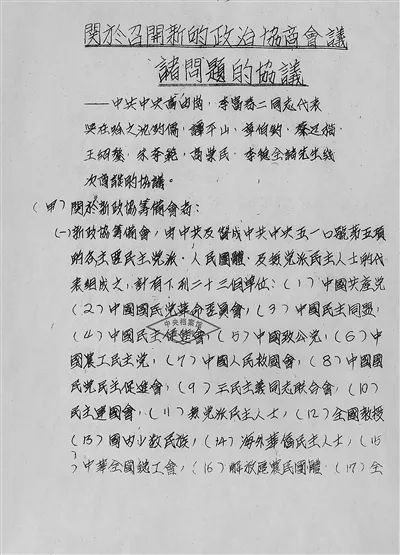 關於召開新的政治協商會議
諸問題的協議
——中共中央高崗、李富春二同志代表
與在哈之沈鈞儒、譚平山、章伯鈞、蔡廷楷、
王紹鏊、朱學範、高崇民、李德全諸先生幾
次商談的協議。
(甲)關於新政協籌備會者:
(一)新政協籌備會,由中共及贊成中共中央五一口號第五項
的各主要民主党派、人民團體、及無党派民主人士的代
表組成之,計有下列二十三個單位:(1)中國共產党
(2)中國國民党革命委員會,(3)中國民主同盟,
(4)中國民主促進會,(5)中國致公党,(6)中
國農工民主党,(7)中國人民救國會,(8)中國國
民党民主促進會,(9)三民主義同志联合會,(10)
民主建國會,(11)無党派民主人士,(12)全國教授
(13)國內少數民族,(14)海外華僑民主人士,(15
)中華全國總工會,(16)解放區農民團體,(17)全
中央档案馆